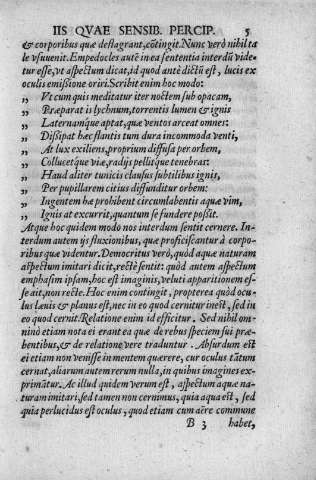 IIS QVAE SENSIB. PERCIP. 5
& corporibus quæ deflagrant, cõtingit. Nunc verò nihil ta
le vsuuenit. Empedocles autẽ in ea sententia interdũ vide-
tur esse, vt aspectum dicat, id quod antè dictũ est, lucis ex
oculis emissione oriri. Scribit enim hoc modo:
„ Vt cum quis meditatur iter noctem sub opacam,
„ Præparat is lychnum, torrentis lumen & ignis
„ Laternamque aptat, quæ ventos arceat omnes:
„ Dissipat hæc flantis tum dura incommoda venti,
„ At lux exiliens, proprium diffusa per orbem,
„ Collucetque viæ, radijs pellitque tenebras:
„ Haud aliter tunicis clausus subtilibus ignis,
„ Per pupillarem citius diffunditur orbem:
„ Ingentem hæ prohibent circumlabentis aquæ vim,
„ Ignis at excurrit, quantum se fundere possit.
Atque hoc quidem modo nos interdum sentit cernere. In-
terdum autem ijs fluxionibus, quæ proficiscantur à corpo-
ribus quæ videntur. Democritus verò, quòd aquæ naturam
aspectum imitari dicit, rectè sentit: quòd autem aspectum
emphasim ipsam, hoc est imaginis, veluti apparitionem es-
se ait, non rectè. Hoc enim contingit, propterea quòd ocu-
lus lenis & planus est, nec in eo quod cernitur inest, sed in
eo quod cernit. Relatione enim id efficitur. Sed nihil om-
nino etiam nota ei erant ea quæ de rebus speciem sui præ-
bentibus, & de relatione vere traduntur. Absurdum est
ei etiam non venisse in mentem quærere, cur oculus tãtum
cernat, aliarum autem rerum nulla, in quibus imagines ex-
primãtur. Ac illud quidem verum est, aspectum aquæ na-
turam imitari, sed tamen non cernimus, quia aqua est, sed
quia perlucidus est oculus, quod etiam cum aëre commune
B 3 habet,